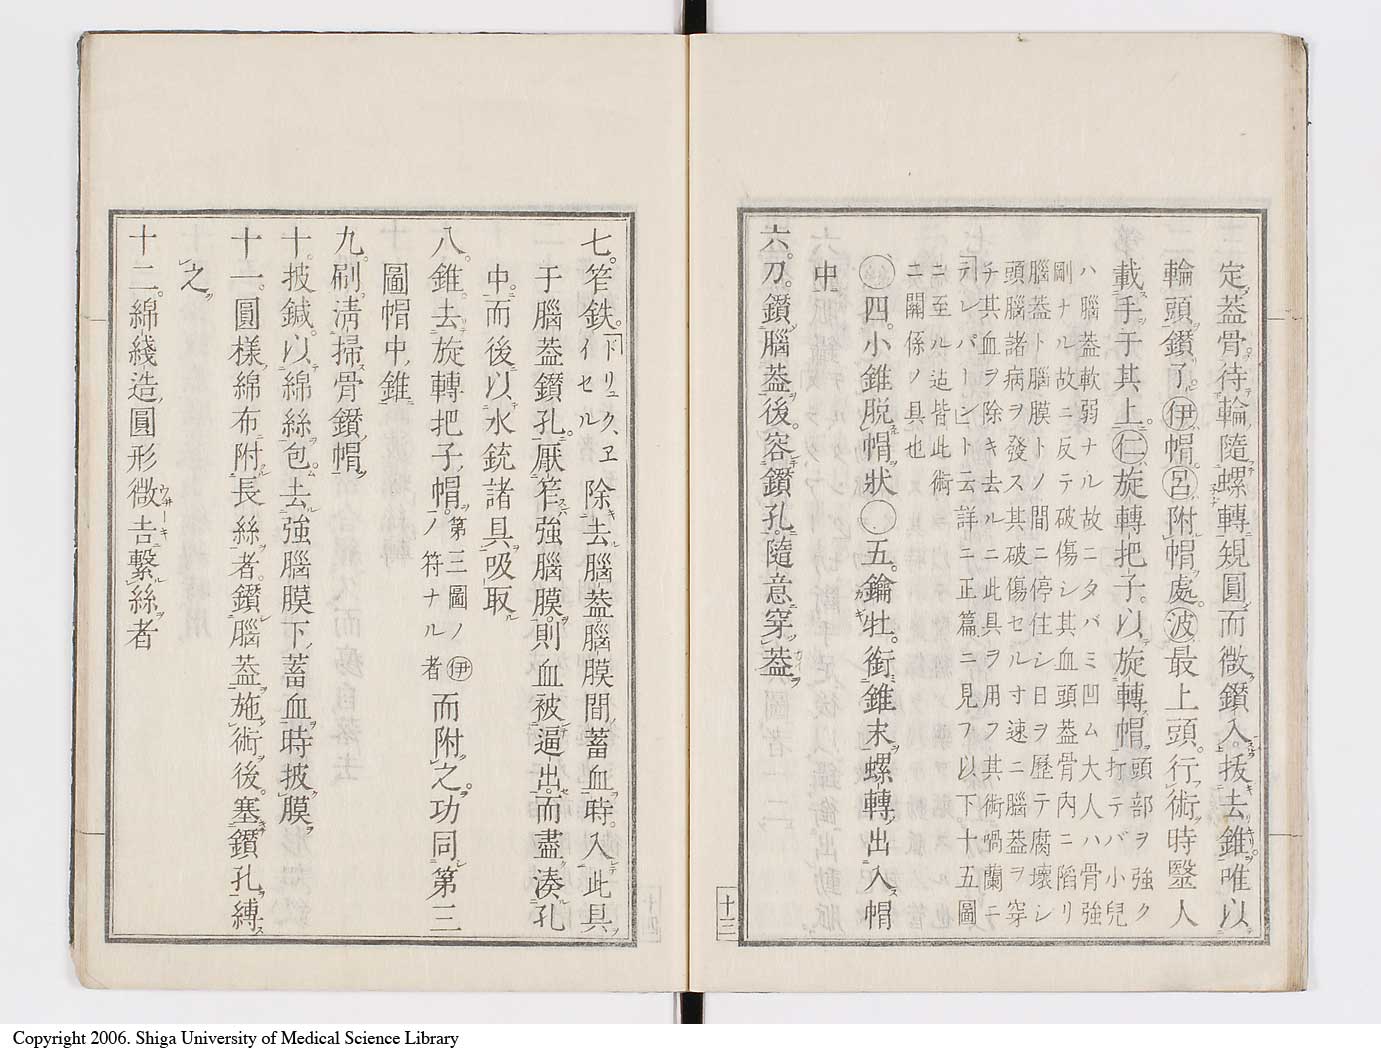 定蓋骨待輪隨螺轉規圓而微鑽入拔去錐唯以
輪頭鑽了㊉伊帽呂附帽處波最上頭行術時毉人
載手于其上仁旋轉把子以旋轉帽頭部ヲ強ク打テバ小兒
ハ腦蓋軟弱ナル故ニタバミ凹ム大人ハ骨強
剛ナル故ニ反テ破傷シ其血頭蓋骨內ニ䧟リ
腦蓋ト腦膜トノ間ニ停住シ日ヲ歴テ腐壞シ
頭腦諸病ヲ發ス其破傷セル寸速ニ腦蓋ヲ穿
チ其血ヲ除キ去ルニ此具ヲ用フ其術喎蘭ニ
テレパーント云詳ニ正篇ニ見フ以下十五圖
ニ至ル迠皆此術
ニ関係ノ具也
四小錐脱帽狀〇五鑰牡銜錐末螺轉出入帽
中
六刀鑽腦蓋後容鑽孔隨意穿蓋
十三
七笮鉄ドリュクヱイセル除去腦蓋腦膜間蓄血時入此具
于腦蓋鑽孔厭笮強腦膜則血被逼出而盡湊孔
中而後以水銃諸具吸取
八錐去旋轉把子帽第三圖ノ伊ノ符ナル者而附之功同第三
圖帽中錐
九刷淸掃骨鑽帽
十披鍼以綿絲包去強腦膜下蓄血時披膜
十一圓樣綿布附長絲者鑽腦蓋施術後塞鑽孔縛
之
十二綿綫造圓形微吉繫絲者
Copyright 2006. Shiga University of Medical Science Library